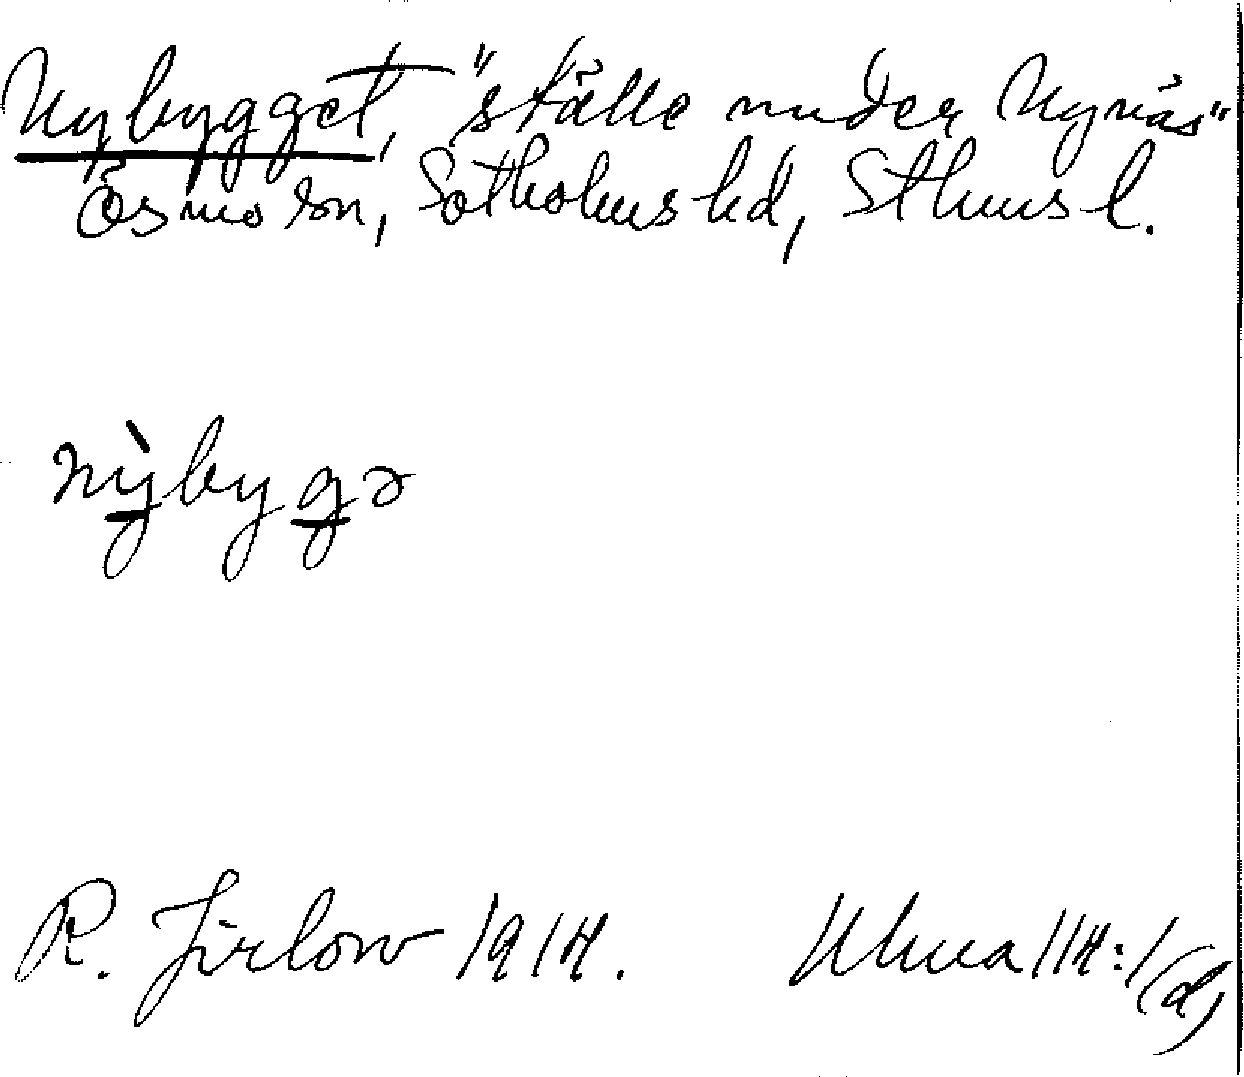 Nybygget, "ställe under Nynäs"
Ösmo sn, Sotholms hd, Sthms l.
nỳbygə
R. Jirlow 1914.
Uluua 114:1 (d)